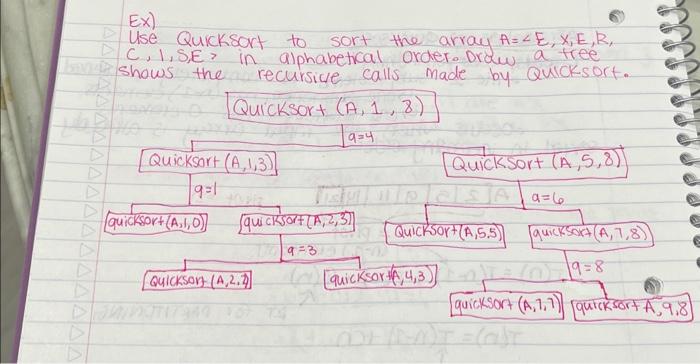 Ex)
Use Quicksort to sort the array A=<E, X, E, R,
C, I, S, E> in alphabetical order. Draw a tree
shows the recursive calls made by Quicksort.
Quicksort (A, 1, 8)
q=4
Quicksort (A,1,3)
Quicksort (A,5,8)
q=1
q=6
quicksort(A,1,0)
quicksort(A,2,3)
Quicksort(A,5,5)
quicksort(A,7,8)
q=3
q=8
Quicksort (A,2,2)
quicksort(A,4,3)
quicksort (A,7,7)
quicksort A,9,8